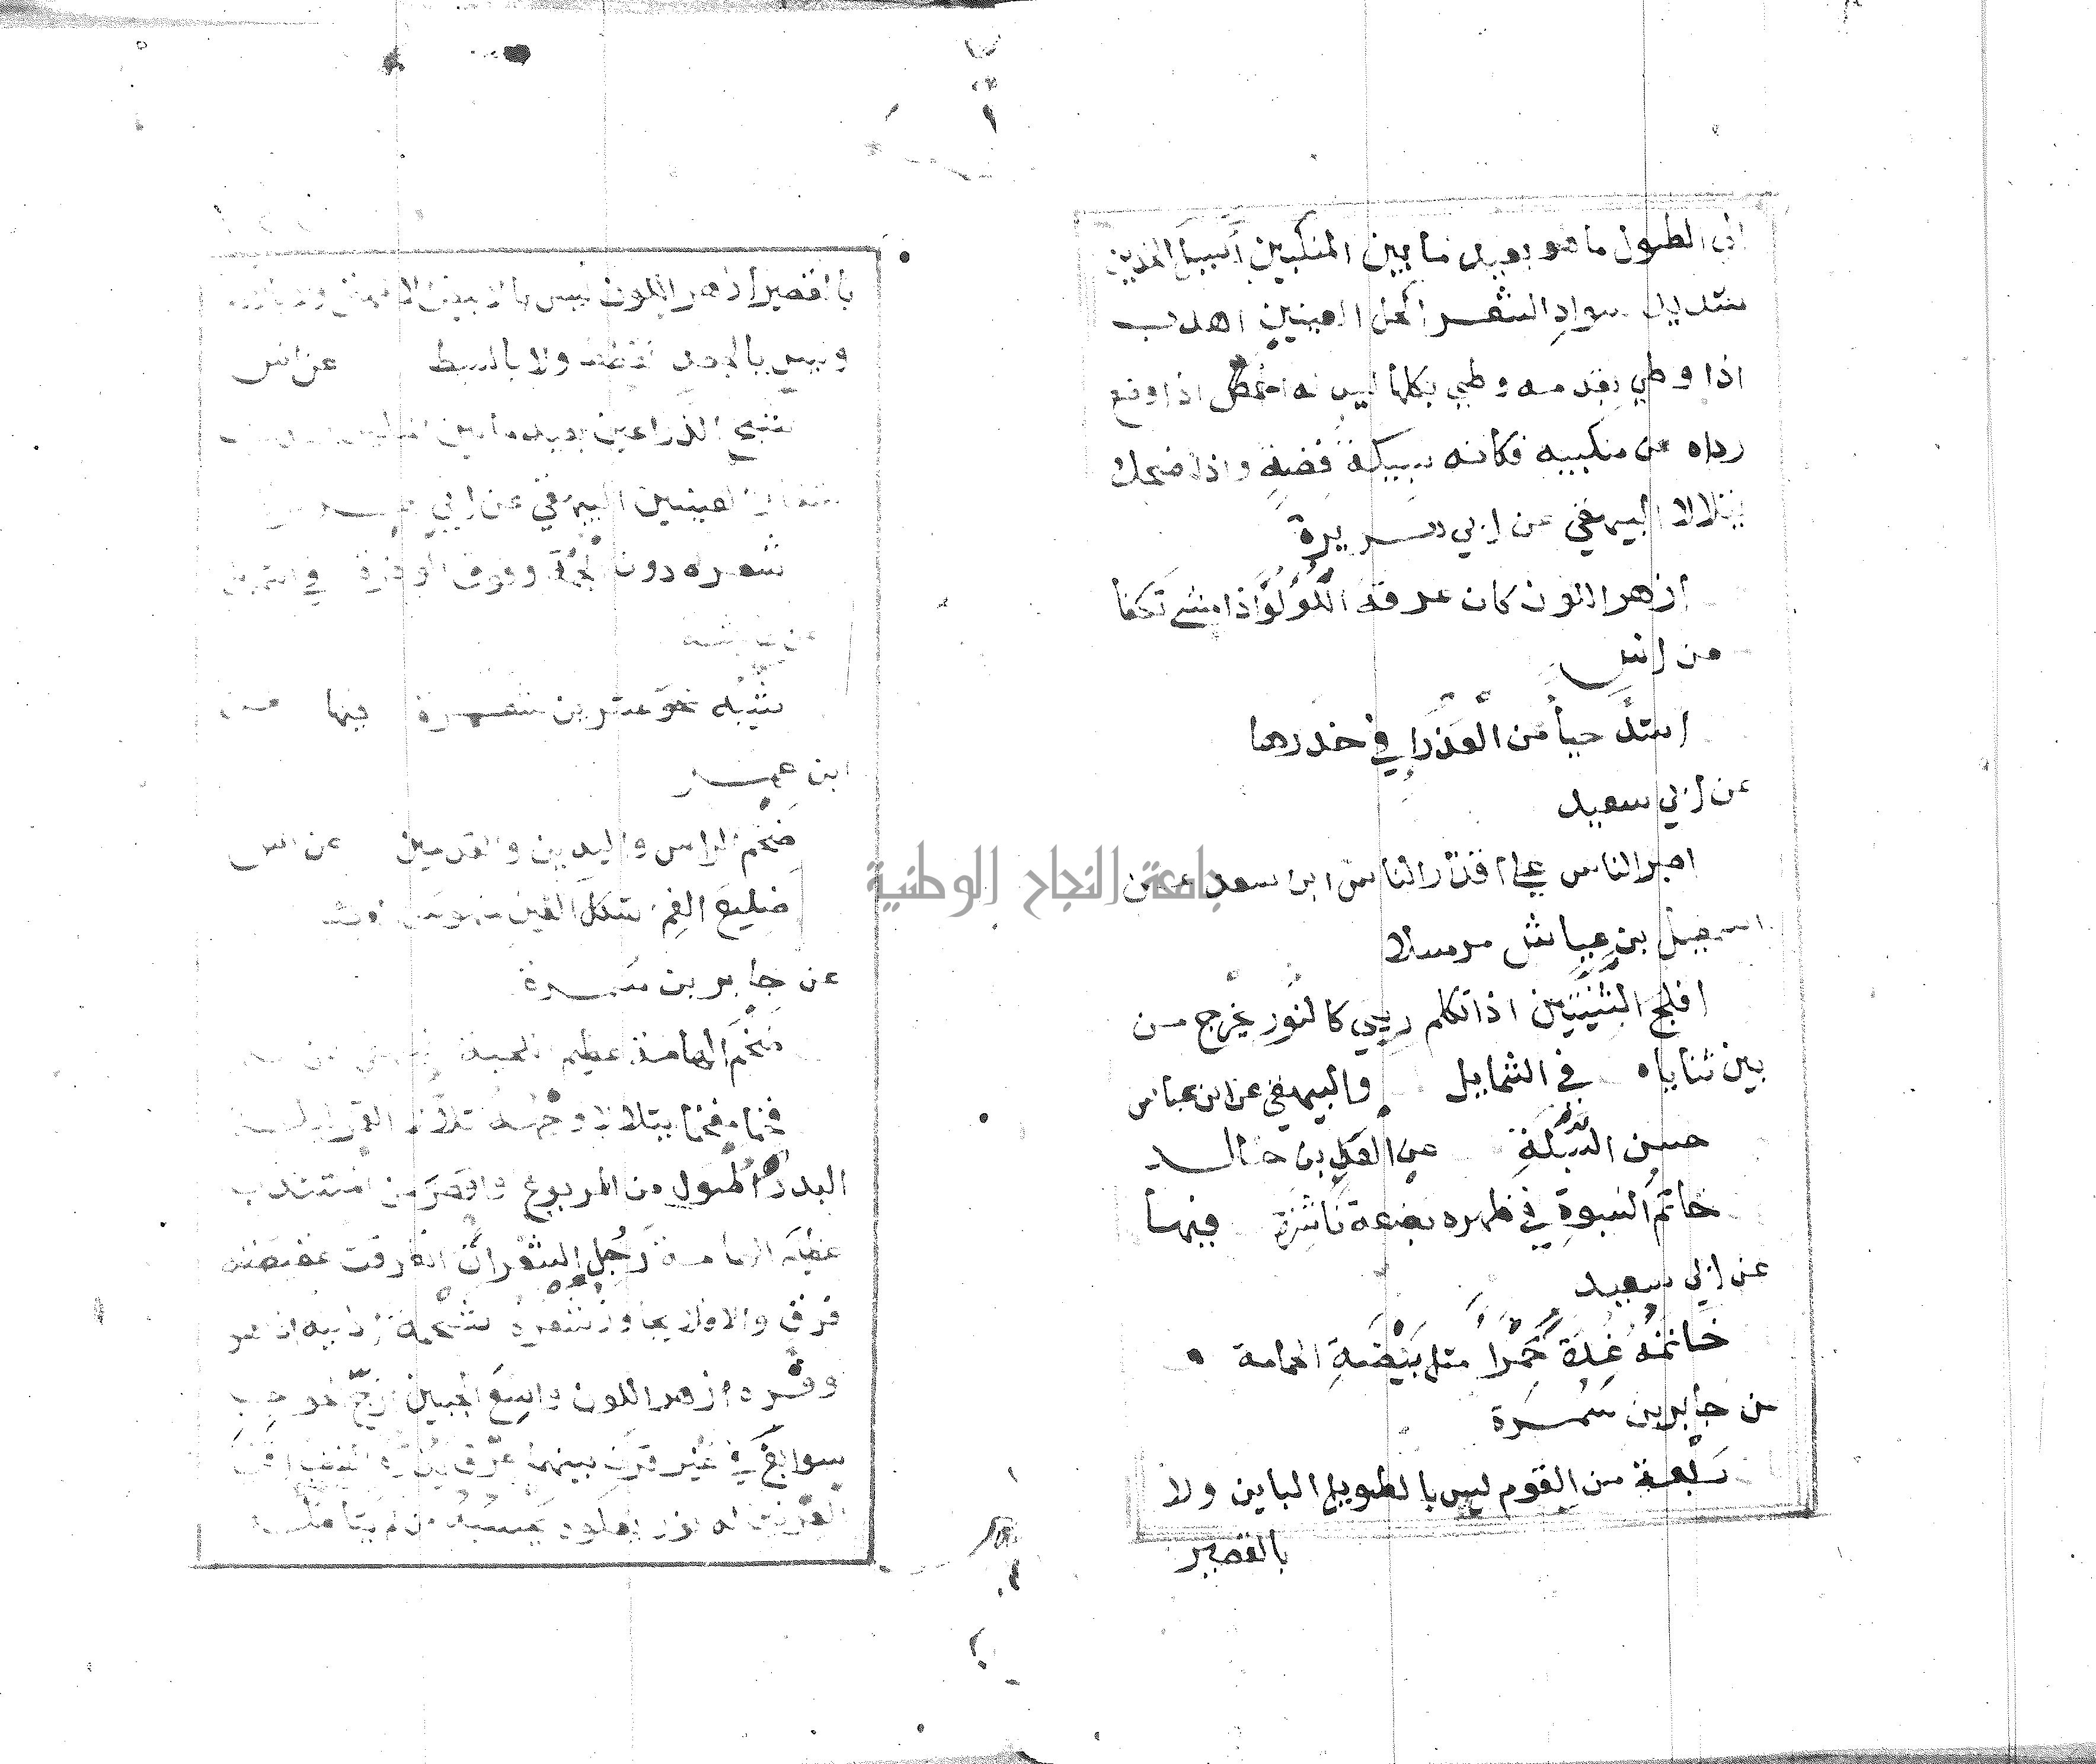 الى الطول ما هو بعيد ما بين المنكبين اسيل الخدين
شديد سواد الشعر اكحل العينين اهدب
اذا وطي بقدمه وطي بكلها ليس له اخمص اذا وضع
رداه عن منكبيه فكانه سبيكة فضة واذا ضحك
يتلالا البيهقي عن ابي هريرة
ازهر اللون كان عرقه اللؤلؤ اذا مشى تكفا
من انس
اشد حيأ من العذرا في خدرها
عن ابي سعيد
اصبر الناس على اقذار الناس ابن سعد عن
اسمعيل بن عياش مرسلا
افلج الثنيتين اذا تكلم ريي كالنور يخرج من
بين ثناياه في الشمايل والبيهقي عن ابن عباس
حسن السبلة عن العد بن خالد
خاتم النبوة في ظهره بضعة ناشزة فيها
عن ابي سعيد
خاتمه غدة حمرا مثل بيضة الحمامة
عن جابر بن سمرة
ربعة من القوم ليس بالطويل الباين ولا
بالقصير
بالقصير ازهر اللون ليس بالابيض الامهق ولا بالادم
وليس بالجعد القطط ولا بالسبط عن انس
شبح الذراعين بعيد ما بين المنكبين
العينين البيهقي عن ابي
شعره دون الجمة وفوق الوفرة في الشمايل
عن عايشة
شيبه نحو عشرين شعرة فيها عن
ابن عمر
ضخم الراس واليدين والقدمين عن انس
ضليع الفم اشكل العينين منهوس
عن جابر بن سمرة
ضخم الهامة عظيم اللحية البيهقي عن
فخما مفخما يتلالا وجهه تلالا القمر ليلة
البدر اطول من المربوع واقصر من المشذب
عظيم الهامة رجل الشعر ان انفرقت عقيقته
فرق والا فلا يجاوز شعره شحمة اذنيه اذا هو
وفره ازهر اللون واسع الجبين ازج الحواجب
سوابغ في غير قرن بينهما عرق يدره الغضب اقنى
العرنين له نور يعلوه يحسبه من لم يتامله
جامعة النجاح الوطنية